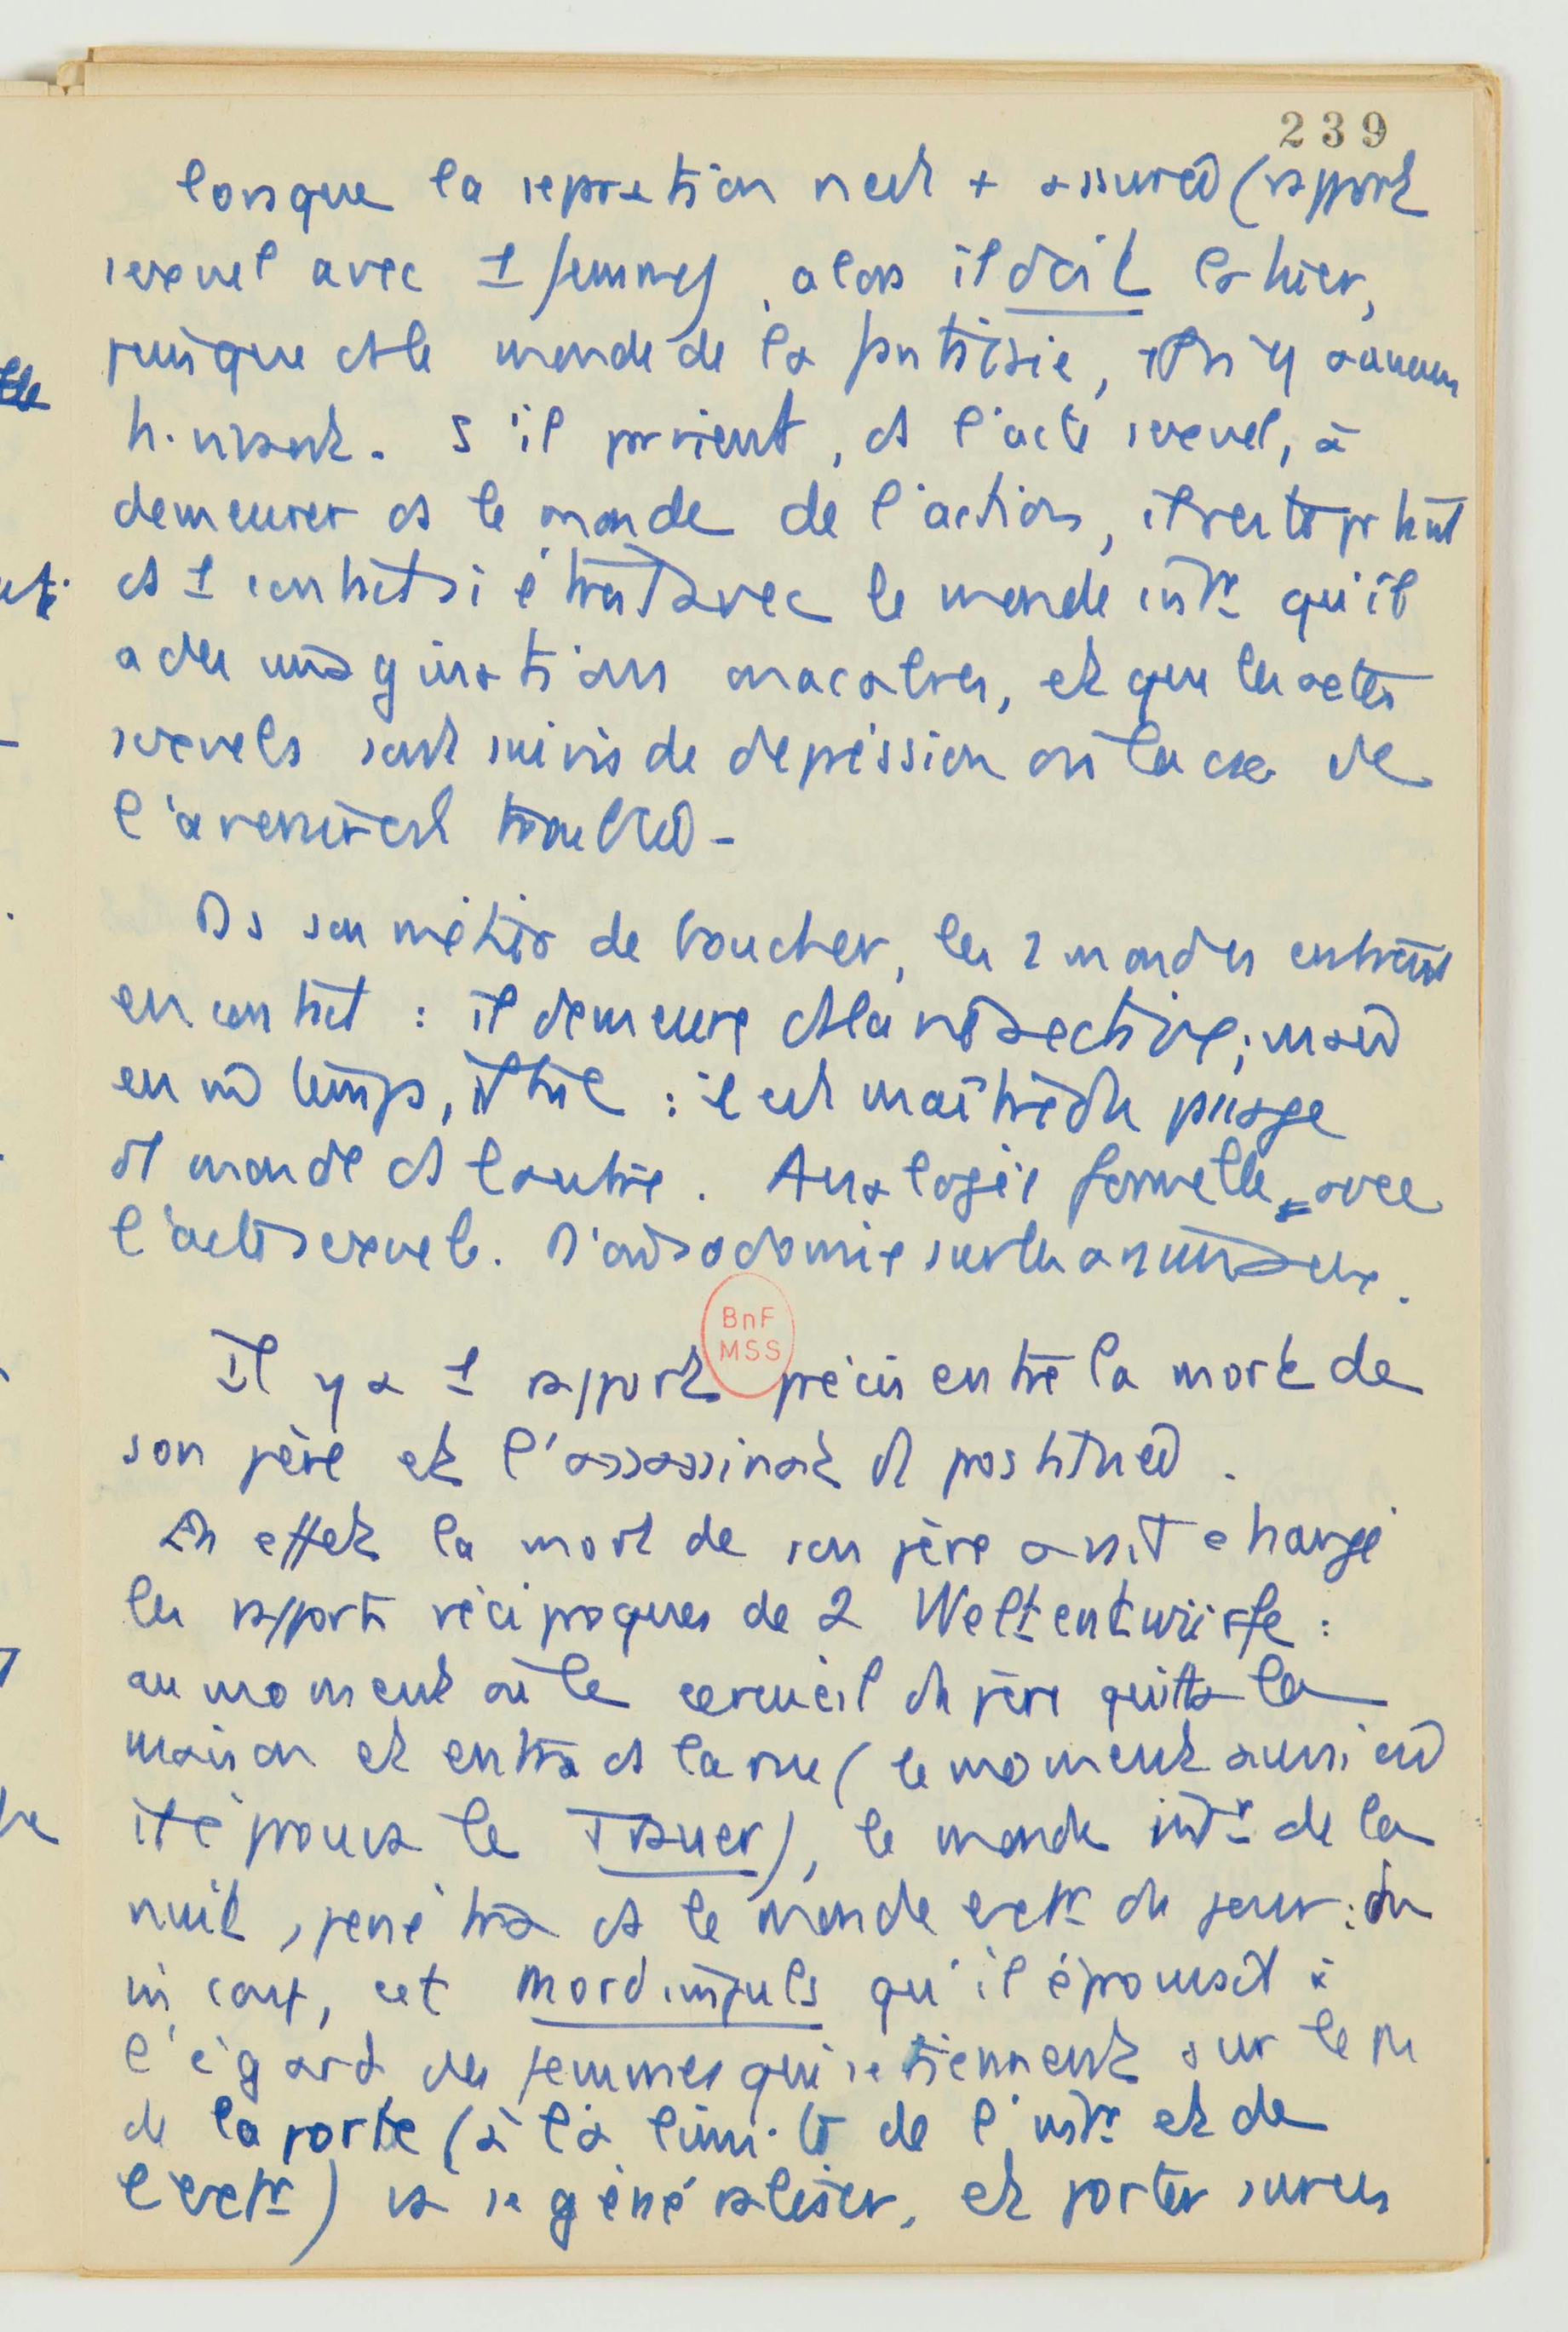 239
lorsque la sepration n'est + assurée (rapport
sexuel avec 1 femme), alors il doit la tuer,
puisque ds le monde de la fantaisie, il n'y a aucun
h. vivant. S'il parvient, ds l'acte sexuel, à
demeurer ds le monde de l'action, il reste prtant
ds 1 contact si étroit avec le monde intr qu'il
a des imaginations macabres, et que les actes
sexuels sont suivis de dépression où la cse de
l'avenir est troublée -
Ds son métier de boucher, les 2 mondes entrent
en contact : il demeure ds la vie active ; mais
en m̂ temps, il tue : il est maître du passage
d'1 monde ds l'autre. Analogie formelle avec
l'acte sexuel. D'où sodomie sur les animaux.
BnF
MSS
Il y a 1 rapport précis entre la mort de
son père et l'assassinat d prostituées.
En effet la mort de son père avait changé
les rapports réciproques de 2 Weltentwürfe :
au moment où le cercueil du père quitta la
maison et entra ds la rue (le moment aussi où
il éprouva le Trauer), le monde intr de la
nuit, pénétra ds le monde extr du jour : du
m̂ coup, cet Mordimpuls qu'il éprouvait à
l'égard des femmes qui se tiennent sur le pas
de la porte (à la limite de l'intr et de
l'extr) va se généraliser, et porter sur les